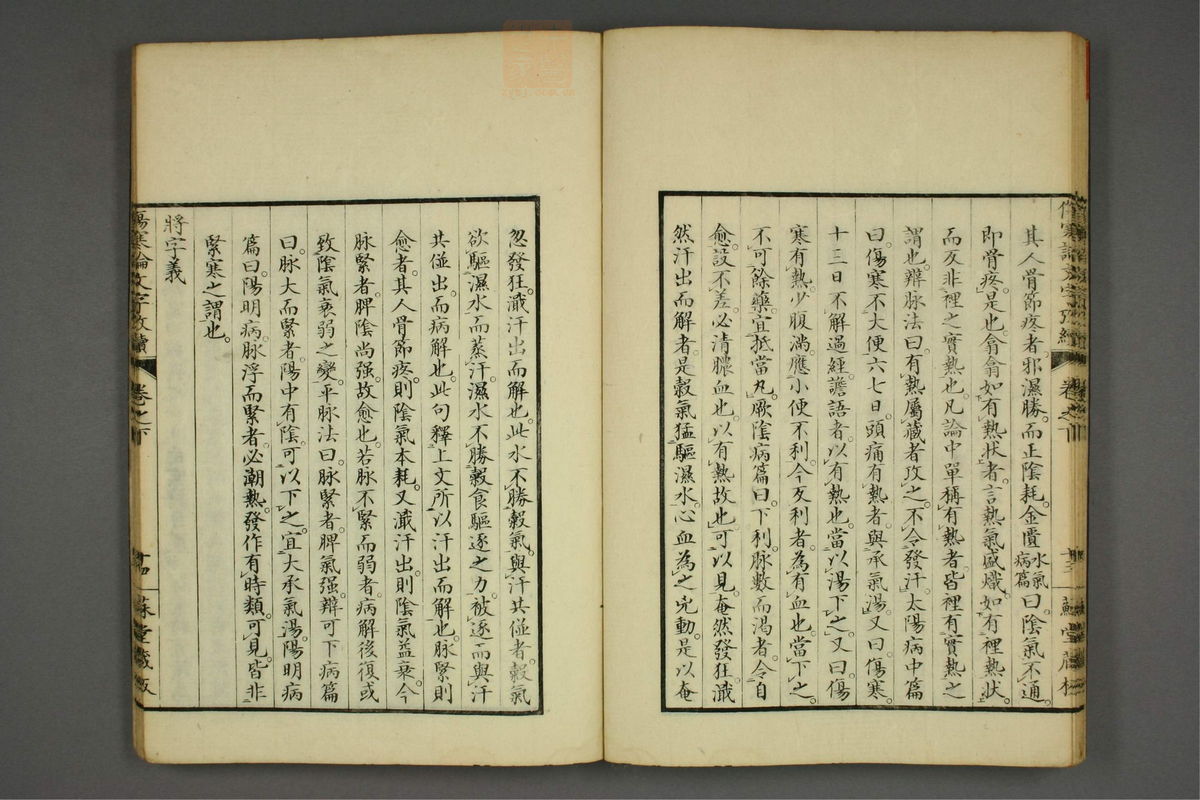 其人骨節疼者邪濕勝而正陰耗金匱水氣病篇曰陰氣不通
即骨疼是也翕翕如有熱状者言熱氣盛熾如有裡熱状
而反非裡之實熱也凡論中單稱有熱者皆裡有實熱之
謂也辨脉法曰有熱屬藏者攻之不令發汗太陽病中篇
曰傷寒不大便六七日頭痛有熱者與承氣湯又曰傷寒
十三日不解過經譫語者以有熱也當以湯下之又曰傷
寒有熱少腹満應小便不利今反利者為有血也當下之
不可餘藥宜抵當丸厥陰病篇曰下利脉數而渴者令自
愈設不差必清膿血也以有熱故也可以見奄然發狂濈
然汗出而解者是穀氣猛驅濕水心血為之兇動是以奄
忽發狂濈汗出而解也此水不勝穀氣與汗共倂出者穀氣
欲驅濕水而蒸汗濕水不勝穀食驅逐之力被逐而與汗
共倂出而病解也此句釋上文所以汗出而解也脉緊則
愈者其人骨節疼則陰氣本耗又濈汗出則陰氣益衰今
脉緊者脾陰尚强故愈也若脉不緊而弱者病解後復或
致陰氣衰弱之變平脉法曰脉緊者脾氣强辨可下病篇
曰脉大而緊者陽中有陰可以下之宜大承氣湯陽明病
篇曰陽明病脉浮而緊者必潮熱發作有時類可見皆非
緊寒之謂也
將字義
傷寒論文字攷續 卷之下 十四 蘇堂藏板